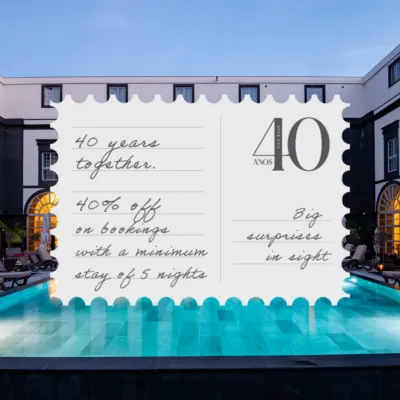 40 years
together.
40% off
on bookings
with a minimum
stay of 5 nights
40
ANOS
Big
surprises
in sight